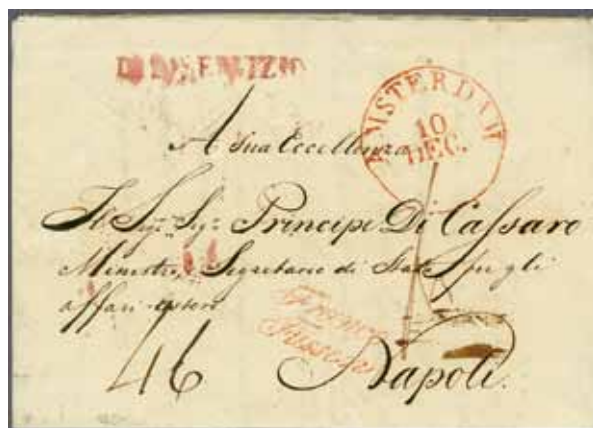 DI SERVIZIO
AMSTERDAM
10
DEC.
A Sua Eccellenza
Il Sigr Sigr Principe Di Cassaro
Ministro, Segretario di Stato per gli
affari esteri
Franco
46
Napoli.